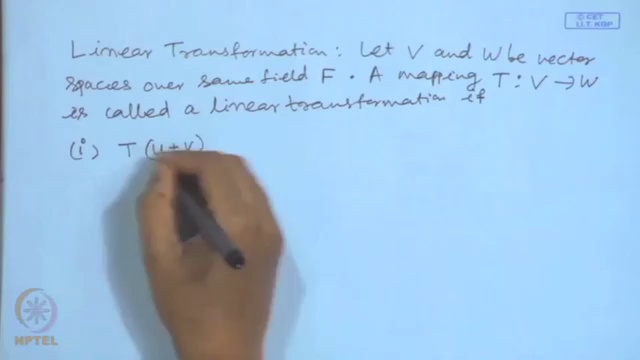 © CET
I.I.T. KGP
Linear Transformation: Let V and W be vector
spaces over same field F. A mapping T: V → W
is called a linear transformation if
(i) T (u+v)
NPTEL